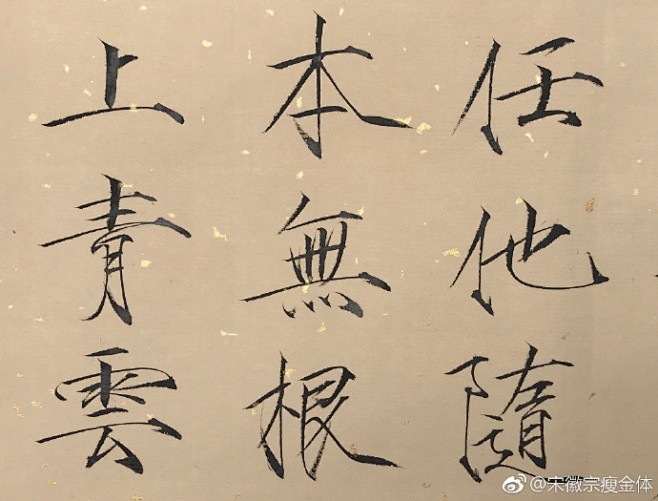 任他隨
本無根
上青雲
@宋徽宗瘦金体